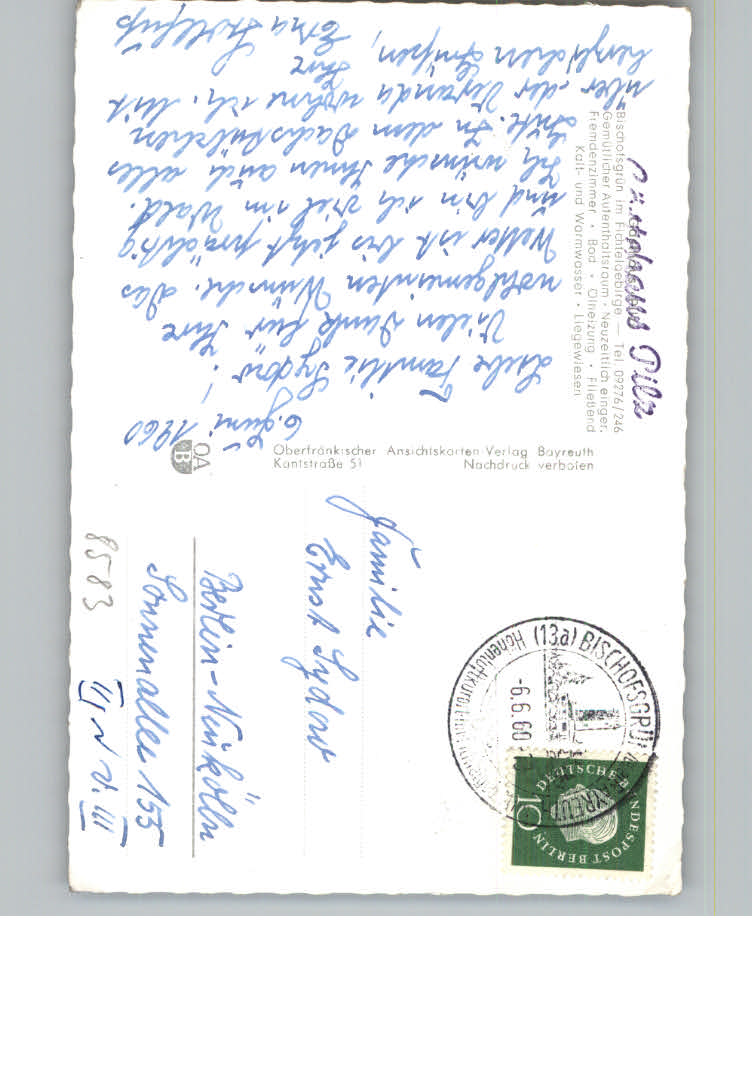 Bischofsgrün im Fichtelgebirge — Tel. 09276/246
Gemütlicher Aufenthaltsraum · Neuzeitlich einger.
Fremdenzimmer · Bad · Ölheizung · Fließend
Kalt- und Warmwasser · Liegewiesen
6. Juni 1960
Liebe Familie Sydow!
Vielen Dank für Ihre
wohlgemeinten Wünsche. Das
Wetter ist bis jetzt prächtig
und bin ich viel im Wald.
Ich wünsche Ihnen auch alles
Gute. In dem Dachstübchen
über der Veranda wohne ich. Mit
herzlichen Grüßen,
Ihre
OA
B
Oberfränkischer Ansichtskarten Verlag Bayreuth
Kantstraße 51
Nachdruck verboten
(13a) BISCHOFSGRÜN
-6.6.60
DEUTSCHE BUNDESPOST BERLIN
10
Familie
Ernst Sydow
Berlin-Neukölln
Sonnenallee 155
8583